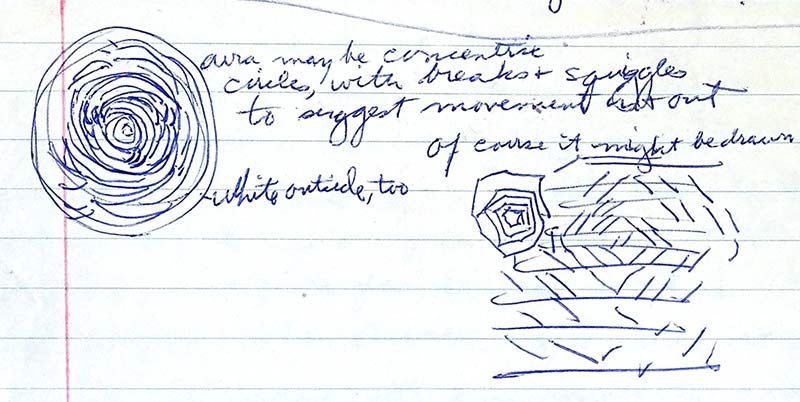 aura may be concentric
circles, with breaks + squiggles
to suggest movement in + out
of course it might be drawn
white outside, too